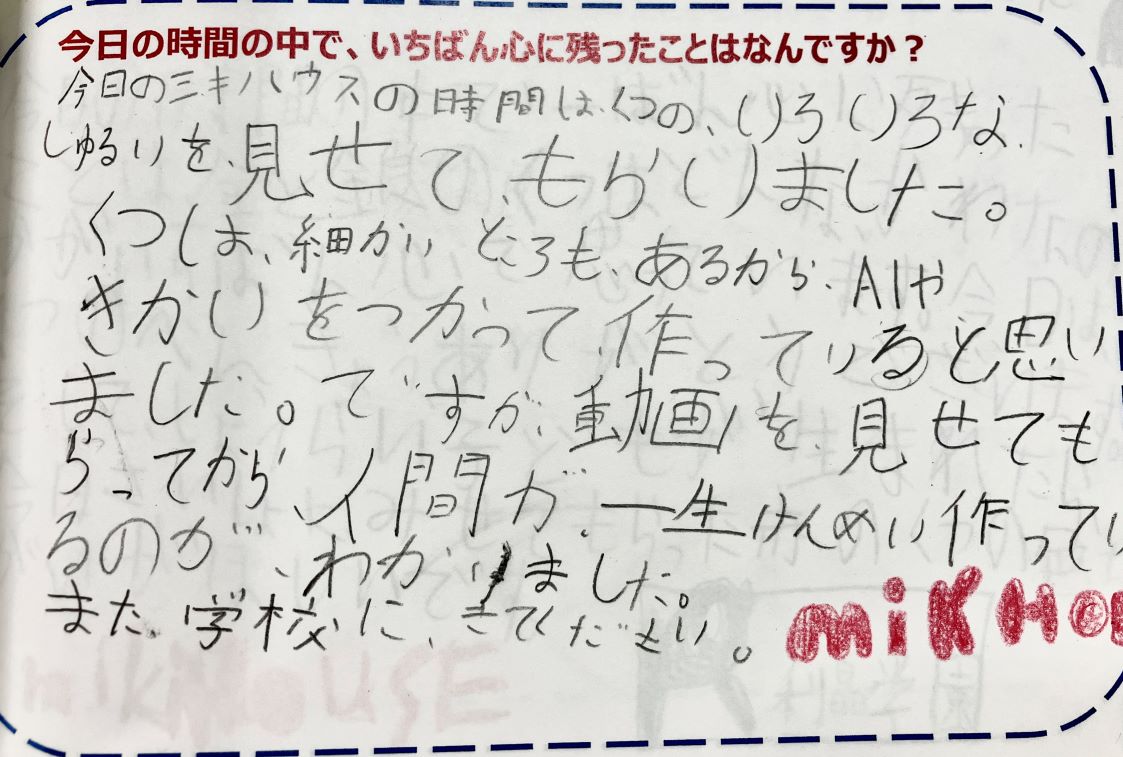 今日の時間の中で、いちばん心に残ったことはなんですか？
今日のミキハウスの時間は、くつの、いろいろな
しゅるいを、見せて、もらいました。
くつは、細かいところも、あるから、AIや
きかいをつかって、作っていると思い
ました。ですが、動画を、見せても
らってから、人間が、一生けんめい作ってい
るのが、わかりました。
また、学校に、きてください。
miKHOU